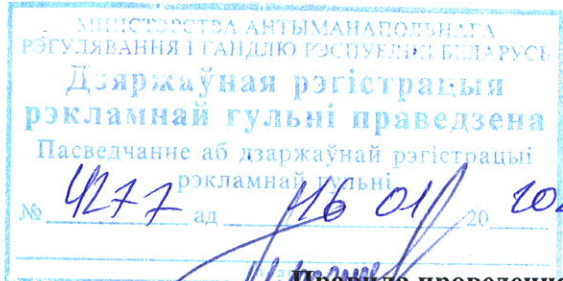 МІНІСТЭРСТВА АНТЫМАНАПОЛЬНАГА
РЭГУЛЯВАННЯ І ГАНДЛЮ РЭСПУБЛІКІ БЕЛАРУСЬ
Дзяржаўная рэгістрацыя
рэкламнай гульні праведзена
Пасведчанне аб дзяржаўнай рэгістрацыі
рэкламнай гульні
№ 4277 ад 16 01 20 202
Правила проведения